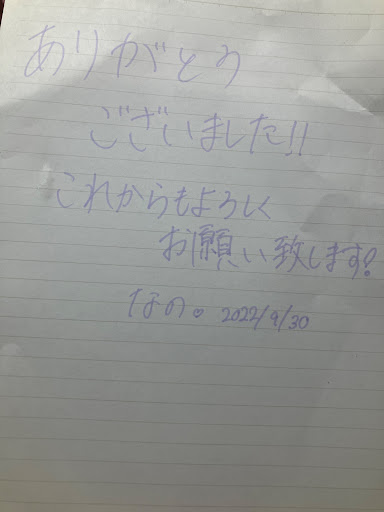 ありがとう
ございました!!
これからもよろしく
お願い致します?
なの。2022/9/30